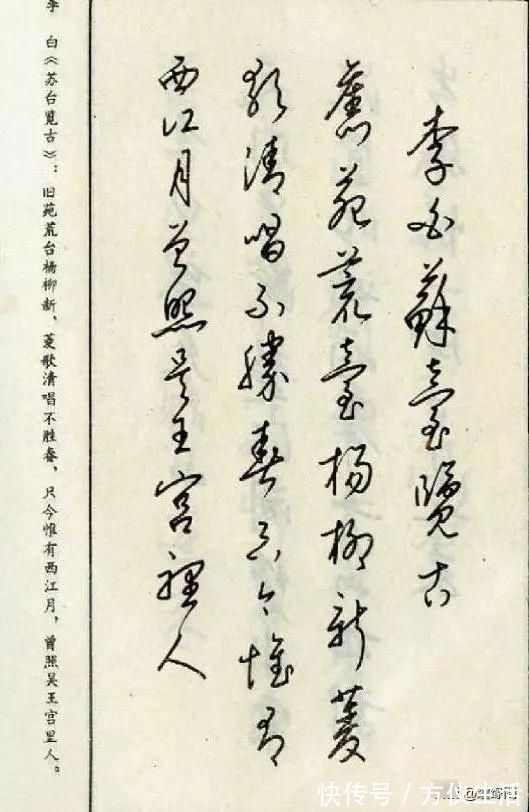 李白蘇臺覽古
舊苑荒臺楊柳新菱
歌清唱不勝春只今惟有
西江月曾照吴王宫裡人
李 白《苏台览古》：旧苑荒台杨柳新，菱歌清唱不胜春，只今惟有西江月，曾照吴王宫里人。
快传号／方仪生活